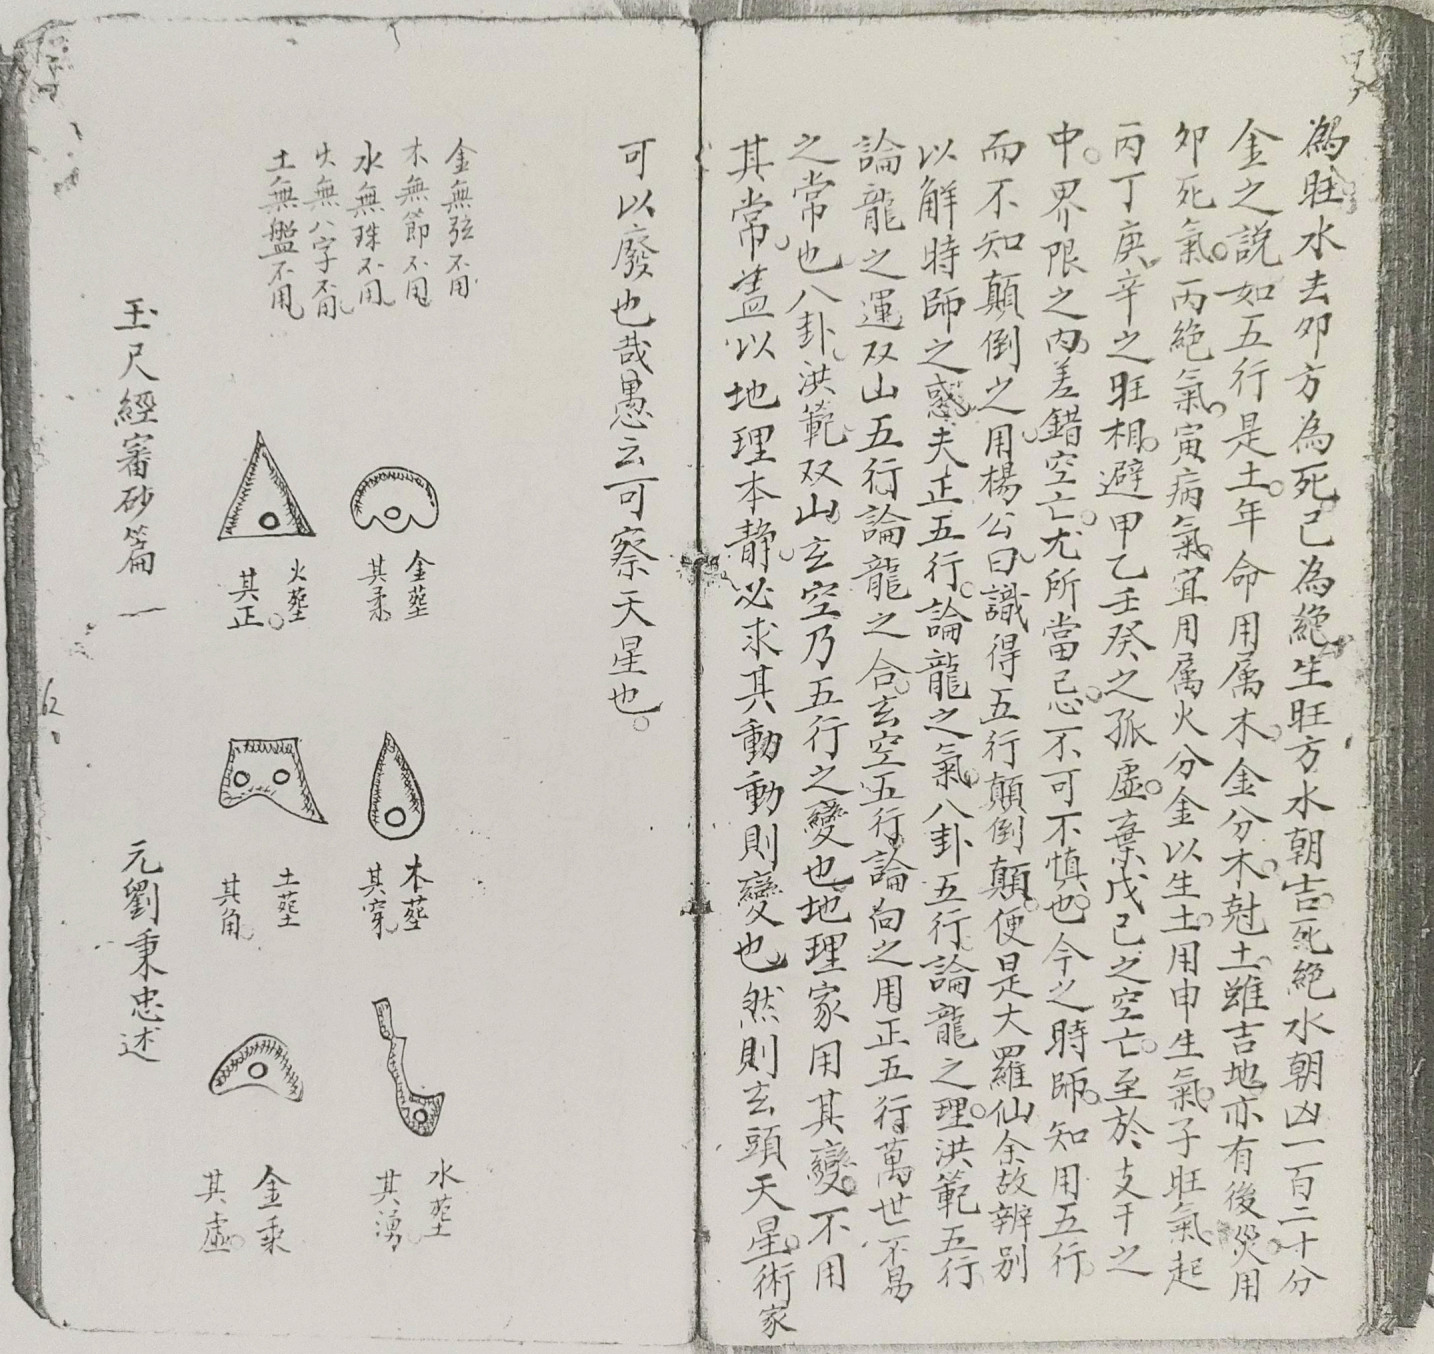 為旺水去卯方為死己為絕生旺方水朝吉死絕水朝凶一百二十分
金之説如五行是土年命用属木金分木尅土雖吉地亦有後災用
卯死氣丙絕氣寅病氣宜用属火分金以生土用申生氣子旺氣起
丙丁庚辛之旺相避甲乙壬癸之孤虛棄戊己之空亡至於支干之
中界限之內差錯空亡尤所當忌不可不慎也今之時師知用五行
而不知顛倒之用楊公曰識得五行顛倒顛便是大羅仙余故辨别
以解時師之惑夫正五行論龍之氣八卦五行論龍之理洪範五行
論龍之運双山五行論龍之合玄空五行論向之用正五行萬世不易
之常也八卦洪範双山玄空乃五行之變也地理家用其變不用
其常盖以地理本静必求其動動則變也然則玄頭天星術家
可以廢也哉愚云可察天星也
金無弦不用
木無節不用
水無珠不用
火無八字不用
土無盤不用
金塟
其柔
火塟
其正
木塟
其穿
土塟
其角
水塟
其湧
金乘
其虛
玉尺經審砂篇一 元劉秉忠述